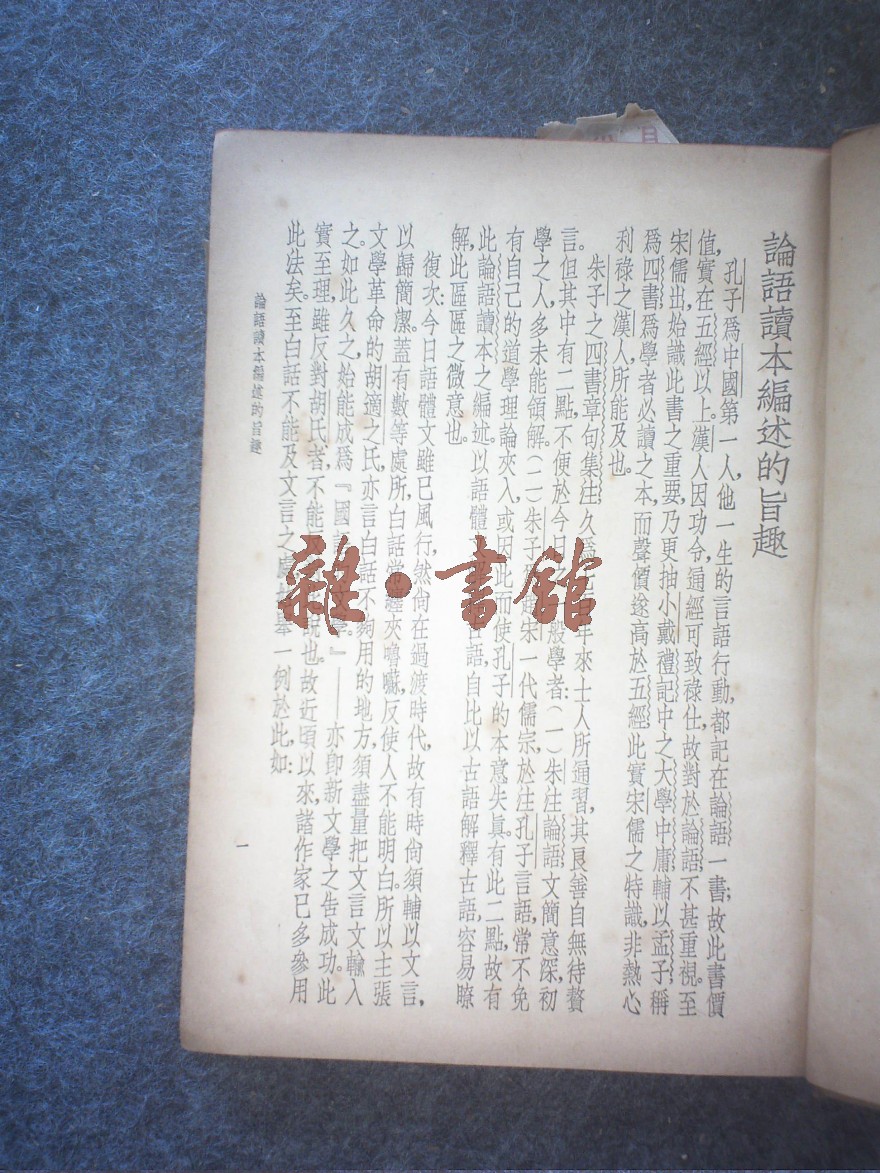 論語讀本編述的旨趣
孔子爲中國第一人,他一生的言語行動,都記在論語一書;故此書價
值,實在五經以上。漢人因功令,通經可致祿仕,故對於論語,不甚重視。至
宋儒出,始識此書之重要,乃更抽小戴禮記中之大學中庸,輔以孟子,稱
爲四書,爲學者必讀之本,而聲價遂高於五經。此實宋儒之特識,非熱心
利祿之漢人所能及也。
朱子之四書章句集注,久爲年來士人所通習,其良善自無待贅
言。但其中有二點,不便於今日般學者:(一)朱注論語,文簡意深,初
學之人,多未能領解。(二)朱子宋一代儒宗,於注孔子言語,常不免
有自己的道學理論夾入,或因此使孔子的本意失眞。有此二點,故有
此論語讀本之編述。以語體語,自比以古語解釋古語,容易瞭
解,此區區之微意也。
復次:今日語體文雖已風行,然尚在過渡時代,故有時尚須輔以文言,
以歸簡潔。蓋有數等處所,白話常纏夾嚕囌,反使人不能明白。所以主張
文學革命的胡適之氏,亦言白話不夠用的地方,須盡量把文言文輸入
之。如此久之,始能成爲『國』——亦卽新文學之告成功。此
實至理,雖反對胡氏者,不能也。故近頃以來,諸作家已多參用
此法矣。至白話不能及文言之一例於此,如:
論語讀本編述的旨趣
一
雜·書館